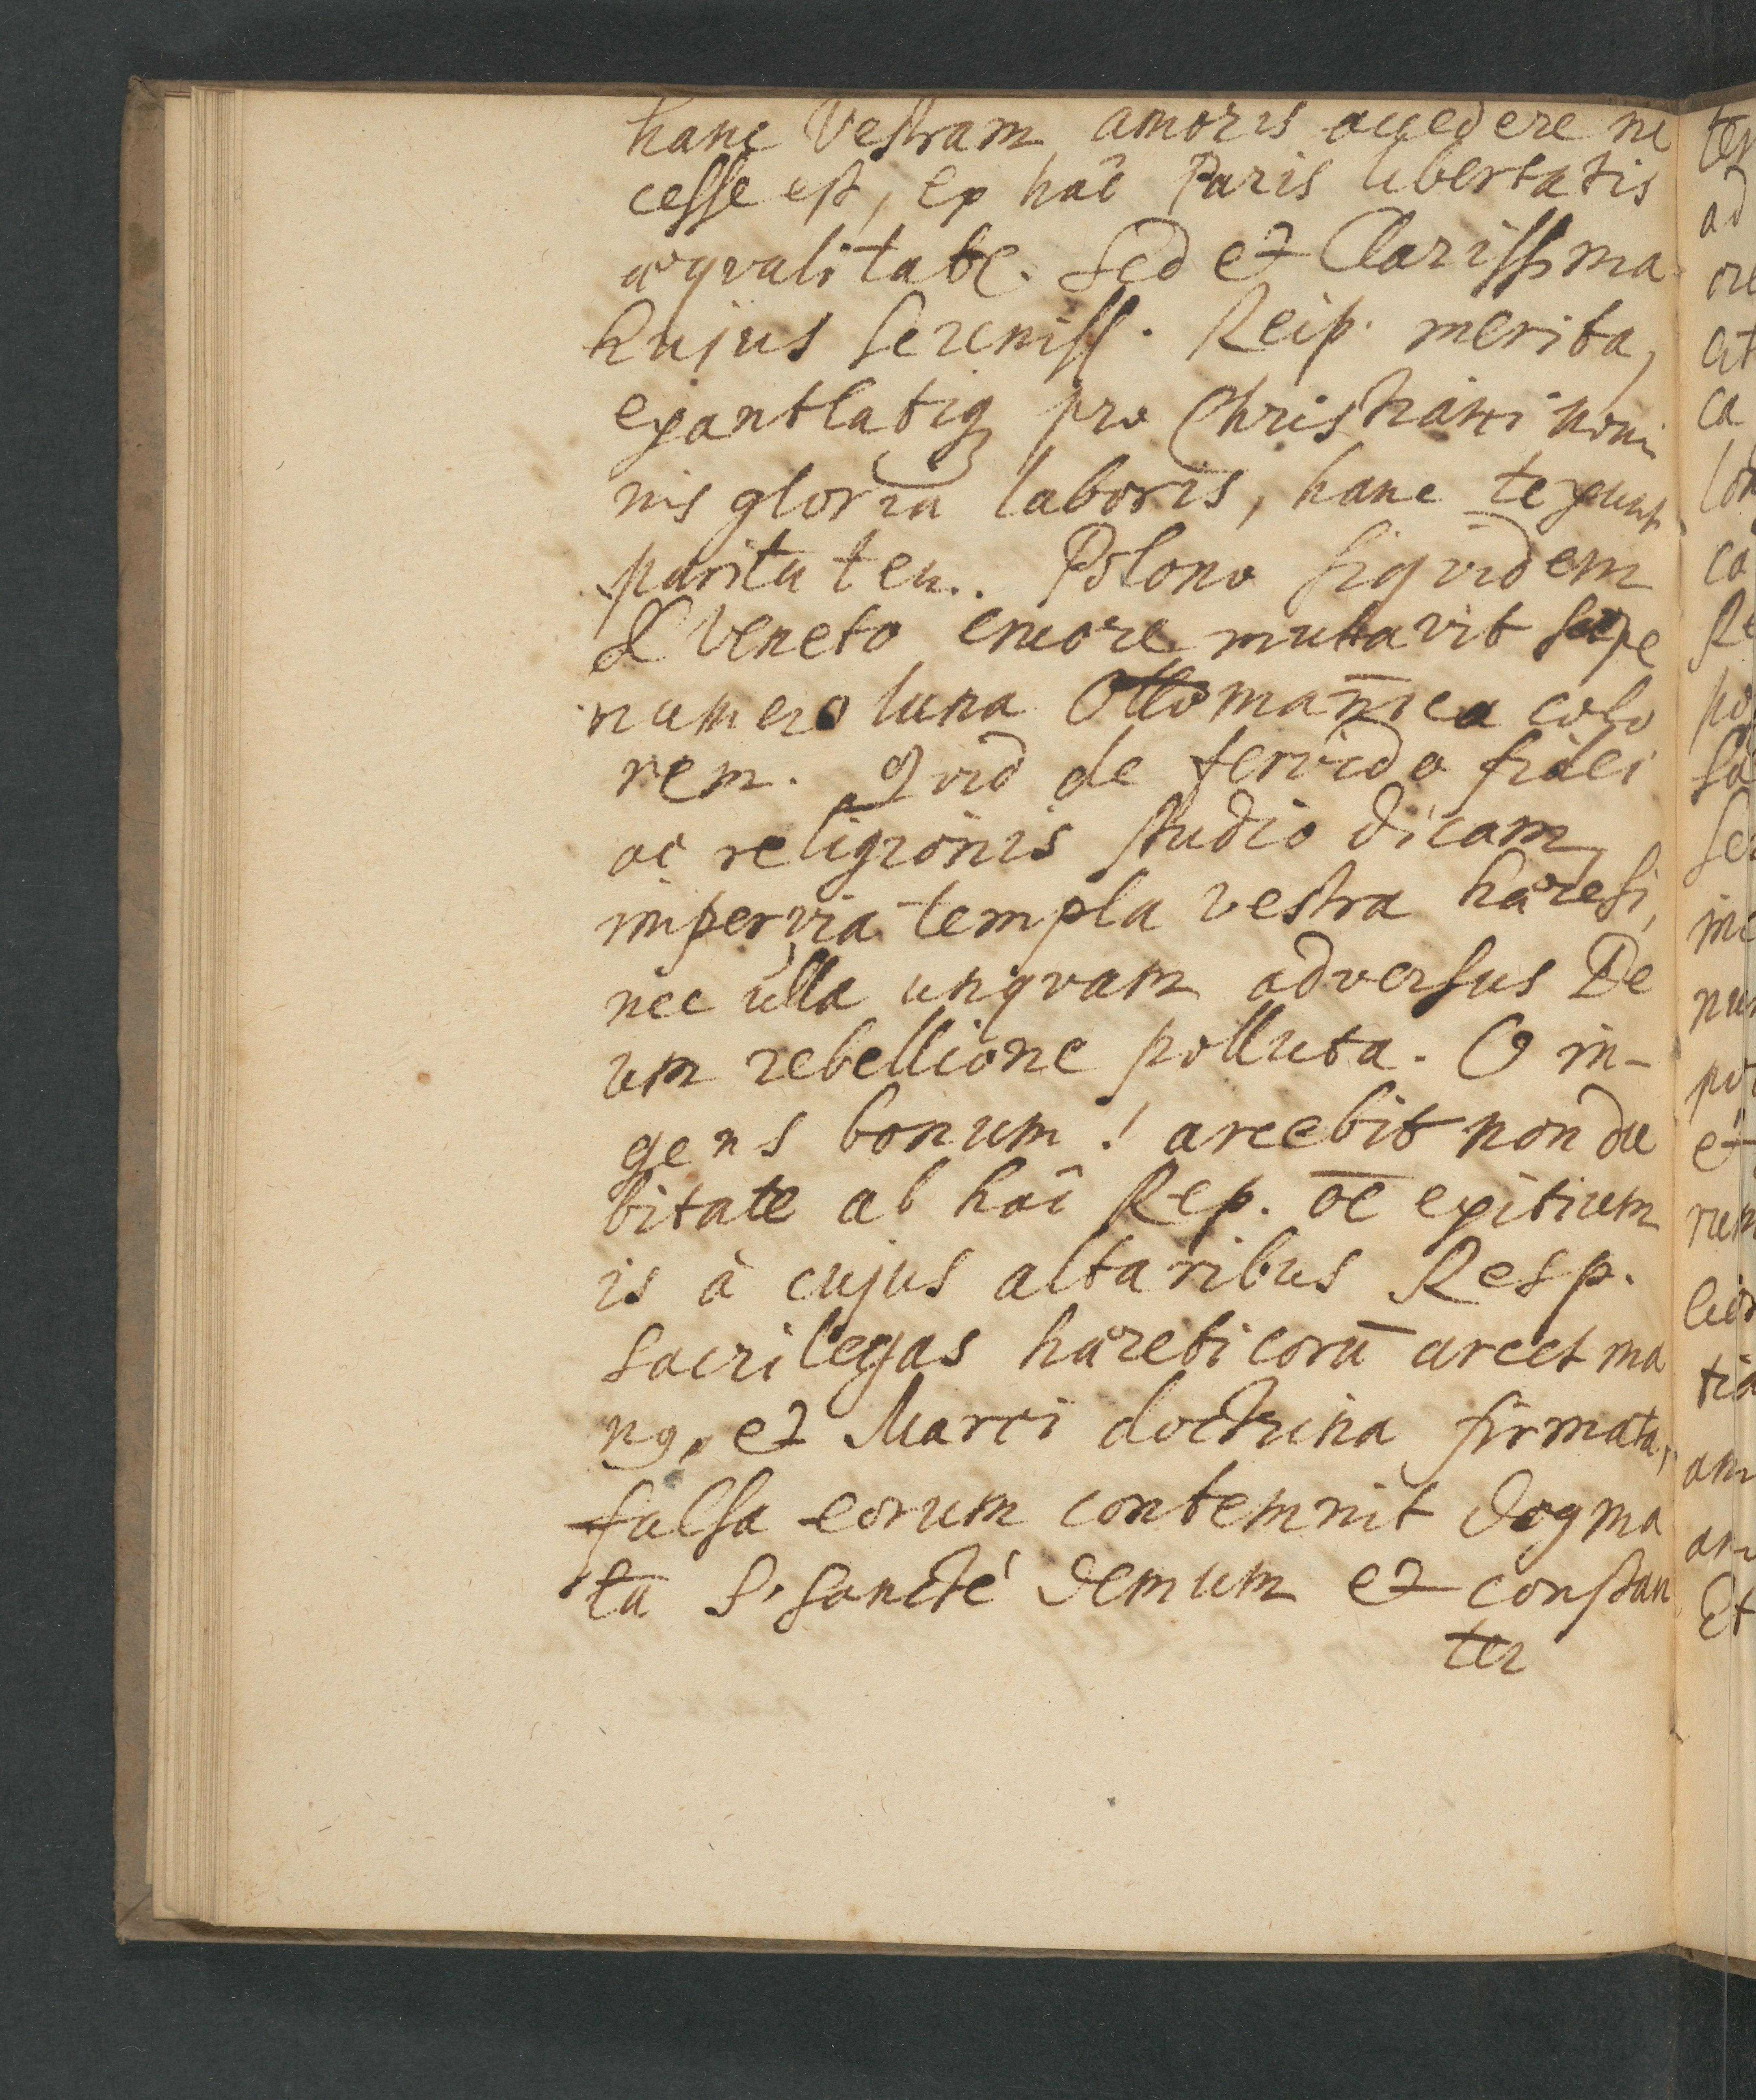 hanc Vestram amoris accedere ne
cesse est, ex hâc Paris libertatis
æqvalitate. Sed et Clarissima
hujus Sereniss. Reip. merita,
exantlatiq pro Christiani nomi
nis gloria laboris, hanc texunt
paritatem. Polono siqvidem
& Veneto cruore mutavit sæpe
numero luna Ottomanica colo
rem. Qvid de fervido fidei
ac religionis studio dicam,
impervia templa vestra hæresi,
nec ulla unqvam adversus De
um rebellione polluta. O in-
gens bonum! arcebit non du
bitate ab hâc Rep. oē exitium
is à cujus altaribus Resp.
sacrilegas hæreticorū arcet ma
n9, et Marci doctrina firmata,
falsa eorum contemnit dogma
ta S. Sancté demum et constan
ter